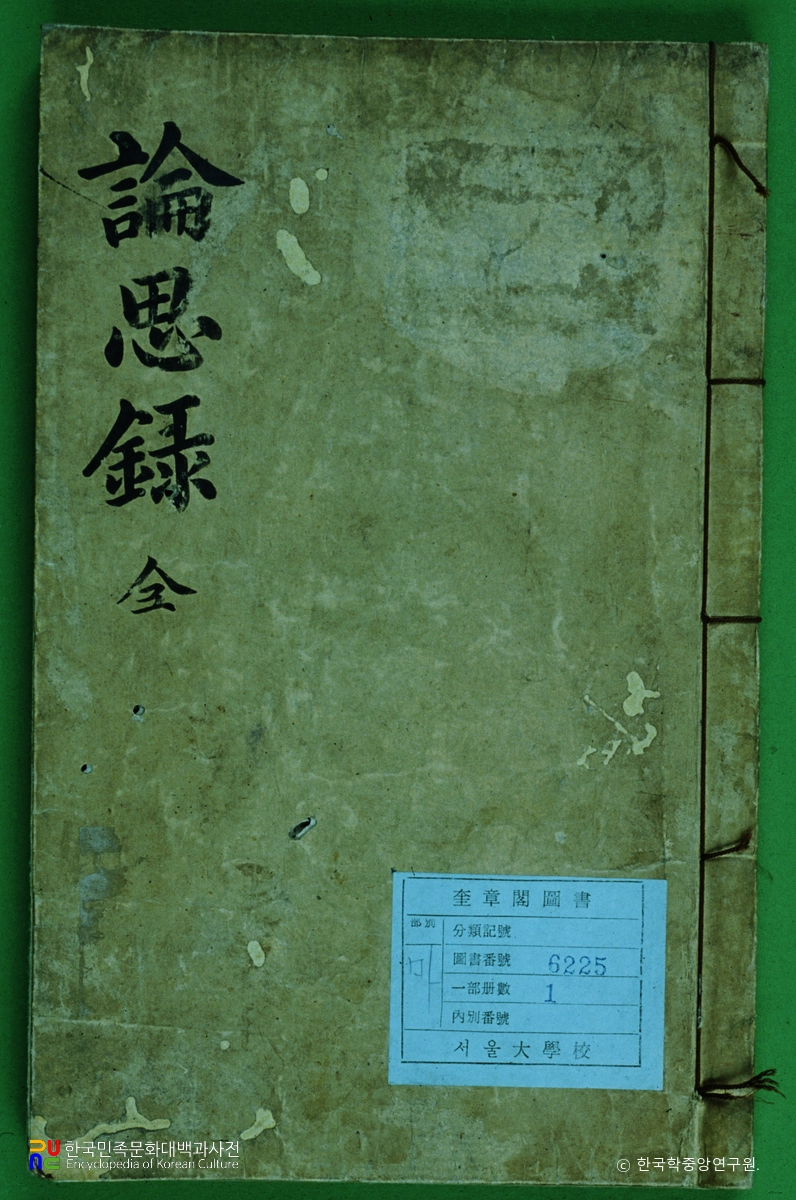 論思錄 全
奎章閣圖書
部別
分類記號
圖書番號 6225
一部册數 1
內別番號
서울大學校
한국민족문화대백과사전
Encyclopedia of Korean Culture
© 한국학중앙연구원.